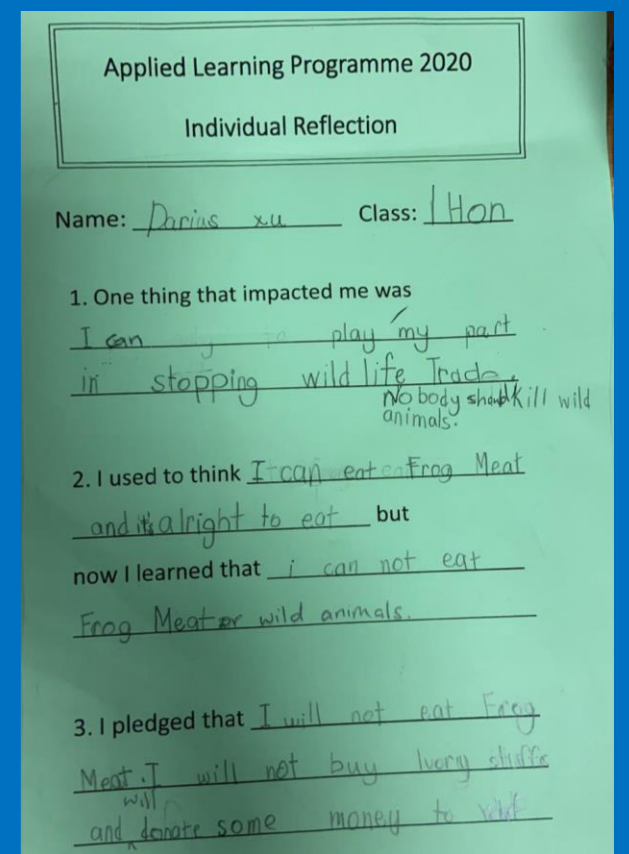 Applied Learning Programme 2020
Individual Reflection
Name: Darius xu Class: 1 Hon
1. One thing that impacted me was
I can play my part
in stopping wild life Trade.
No body should kill wild
animals.
2. I used to think I can eat Frog Meat
and it's alright to eat but
now I learned that i can not eat
Frog Meat or wild animals.
3. I pledged that I will not eat Frog
Meat. I will not buy Ivory stuffs
will
and donate some money to